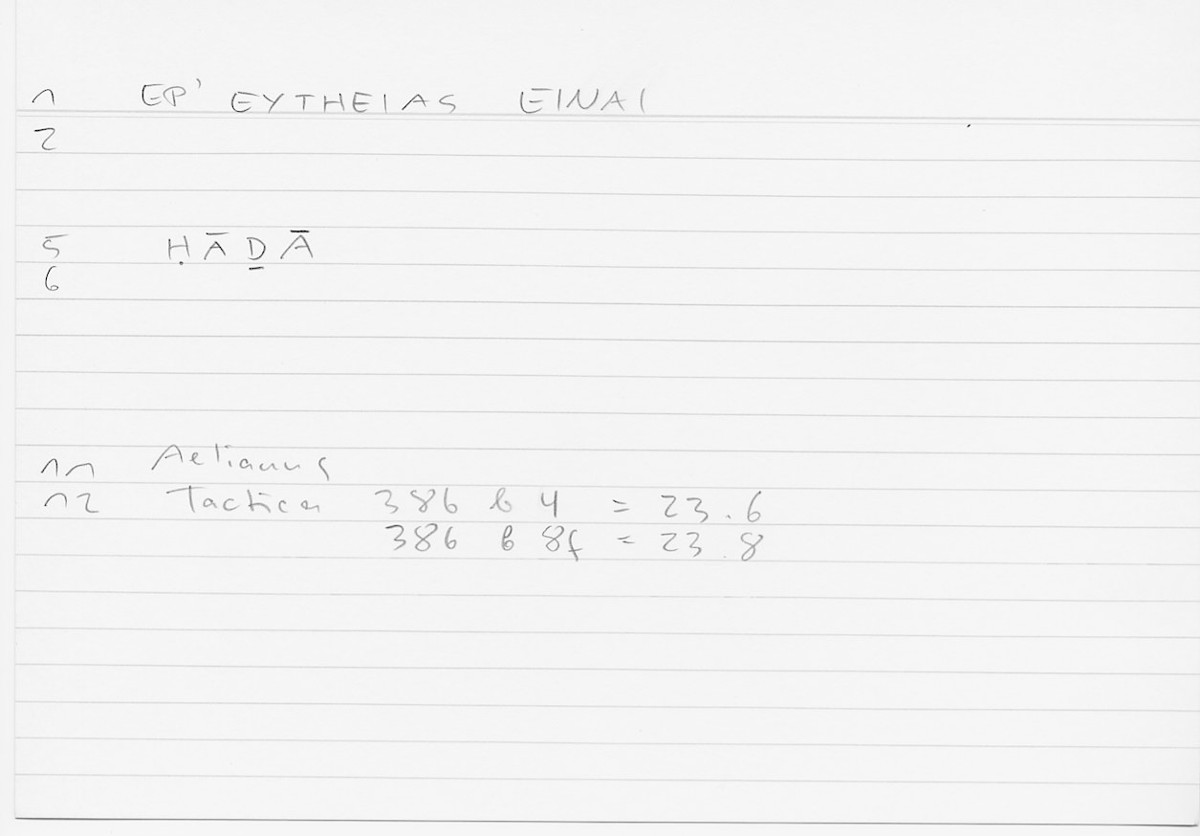 1 EP' EYTHEIAS EINAI
2
5 ḤĀḎĀ
6
11 Aelianus
12 Tactica 386 b 4 = 23.6
386 b 8f = 23.8